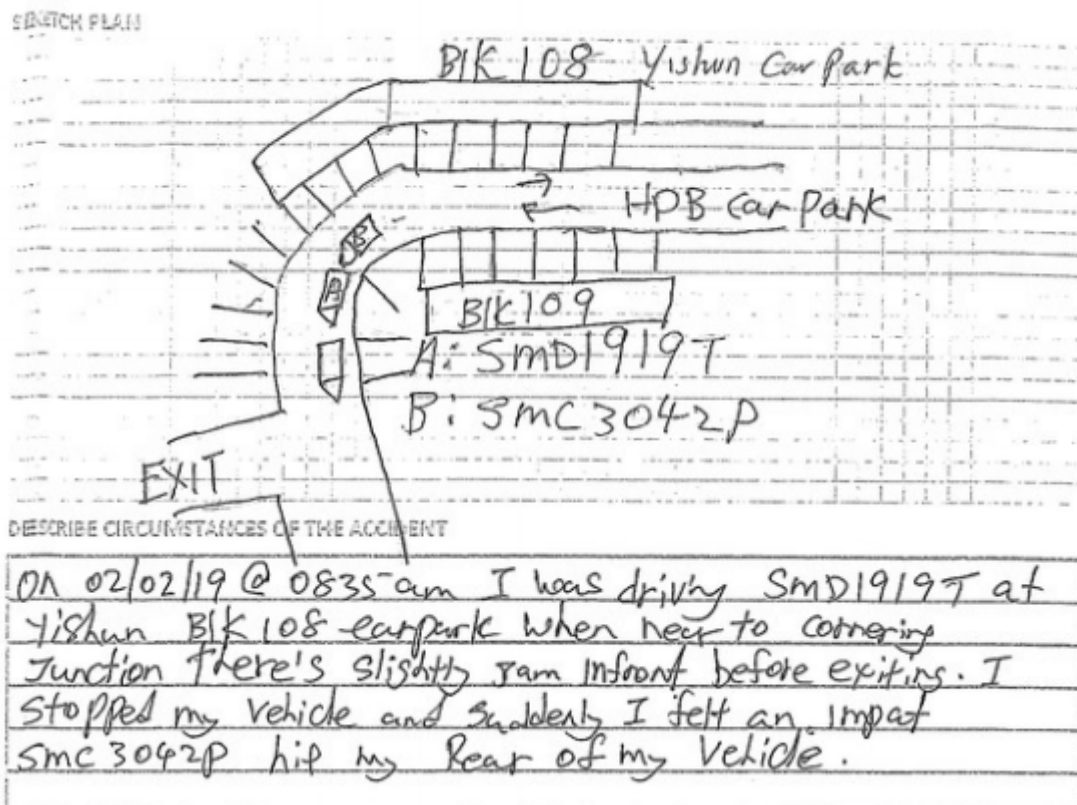 SKETCH PLAN
BIK 108 Yishun Car Park
HDB Car Park
B
A
BIK 109
A: SMD1919T
B: SMC3042P
EXIT
DESCRIBE CIRCUMSTANCES OF THE ACCIDENT
On 02/02/19 @ 0835am I was driving SMD1919T at
Yishun BIK 108 carpark when near to cornering
Junction there's slightly jam infront before exiting. I
stopped my vehicle and suddenly I felt an impat
SMC 3042P hit my Rear of my Vehicle.